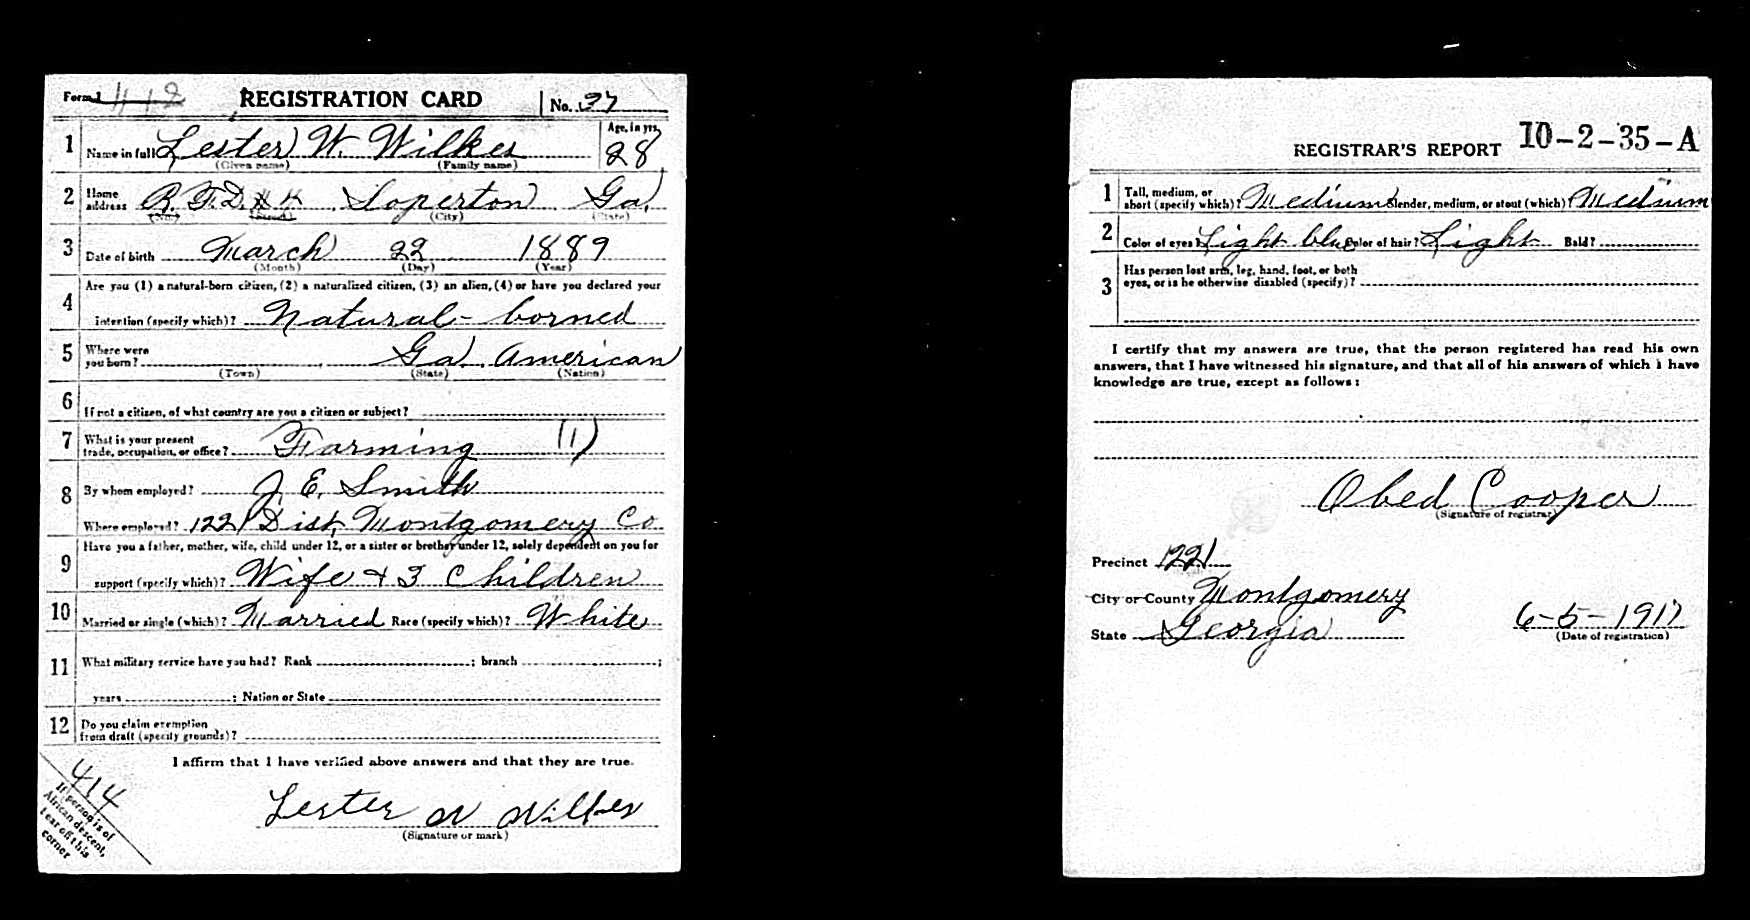 Form 1 412 REGISTRATION CARD No. 37
1 Name in full Lester W. Wilkes Age, in yrs. 28
(Given name) (Family name)
2 Home address R.F.D. # 4 Soperton Ga.
(No.) (Street) (City) (State)
3 Date of birth March 22 1889
(Month) (Day) (Year)
4 Are you (1) a natural-born citizen, (2) a naturalized citizen, (3) an alien, (4) or have you declared your
intention (specify which)? Natural-borned
5 Where were you born? Ga. American
(Town) (State) (Nation)
6 If not a citizen, of what country are you a citizen or subject?
7 What is your present trade, occupation, or office? Farming (1)
8 By whom employed? J. E. Smith
Where employed? 1221 Dist, Montgomery Co
9 Have you a father, mother, wife, child under 12, or a sister or brother under 12, solely dependent on you for
support (specify which)? Wife + 3 Children
10 Married or single (which)? Married Race (specify which)? White
11 What military service have you had? Rank ; branch ;
years ; Nation or State
12 Do you claim exemption from draft (specify grounds)?
I affirm that I have verified above answers and that they are true.
Lester W Wilkes
(Signature or mark)
414
If person is of
African descent,
tear off this
corner
10-2-35-A
REGISTRAR'S REPORT
1 Tall, medium, or short (specify which)? Medium Slender, medium, or stout (which)? Medium
2 Color of eyes? Light blue Color of hair? Light Bald?
3 Has person lost arm, leg, hand, foot, or both
eyes, or is he otherwise disabled (specify)?
I certify that my answers are true, that the person registered has read his own
answers, that I have witnessed his signature, and that all of his answers of which I have
knowledge are true, except as follows:
Obed Cooper
(Signature of registrar)
Precinct 1221
City or County Montgomery
State Georgia 6-5-1917
(Date of registration)